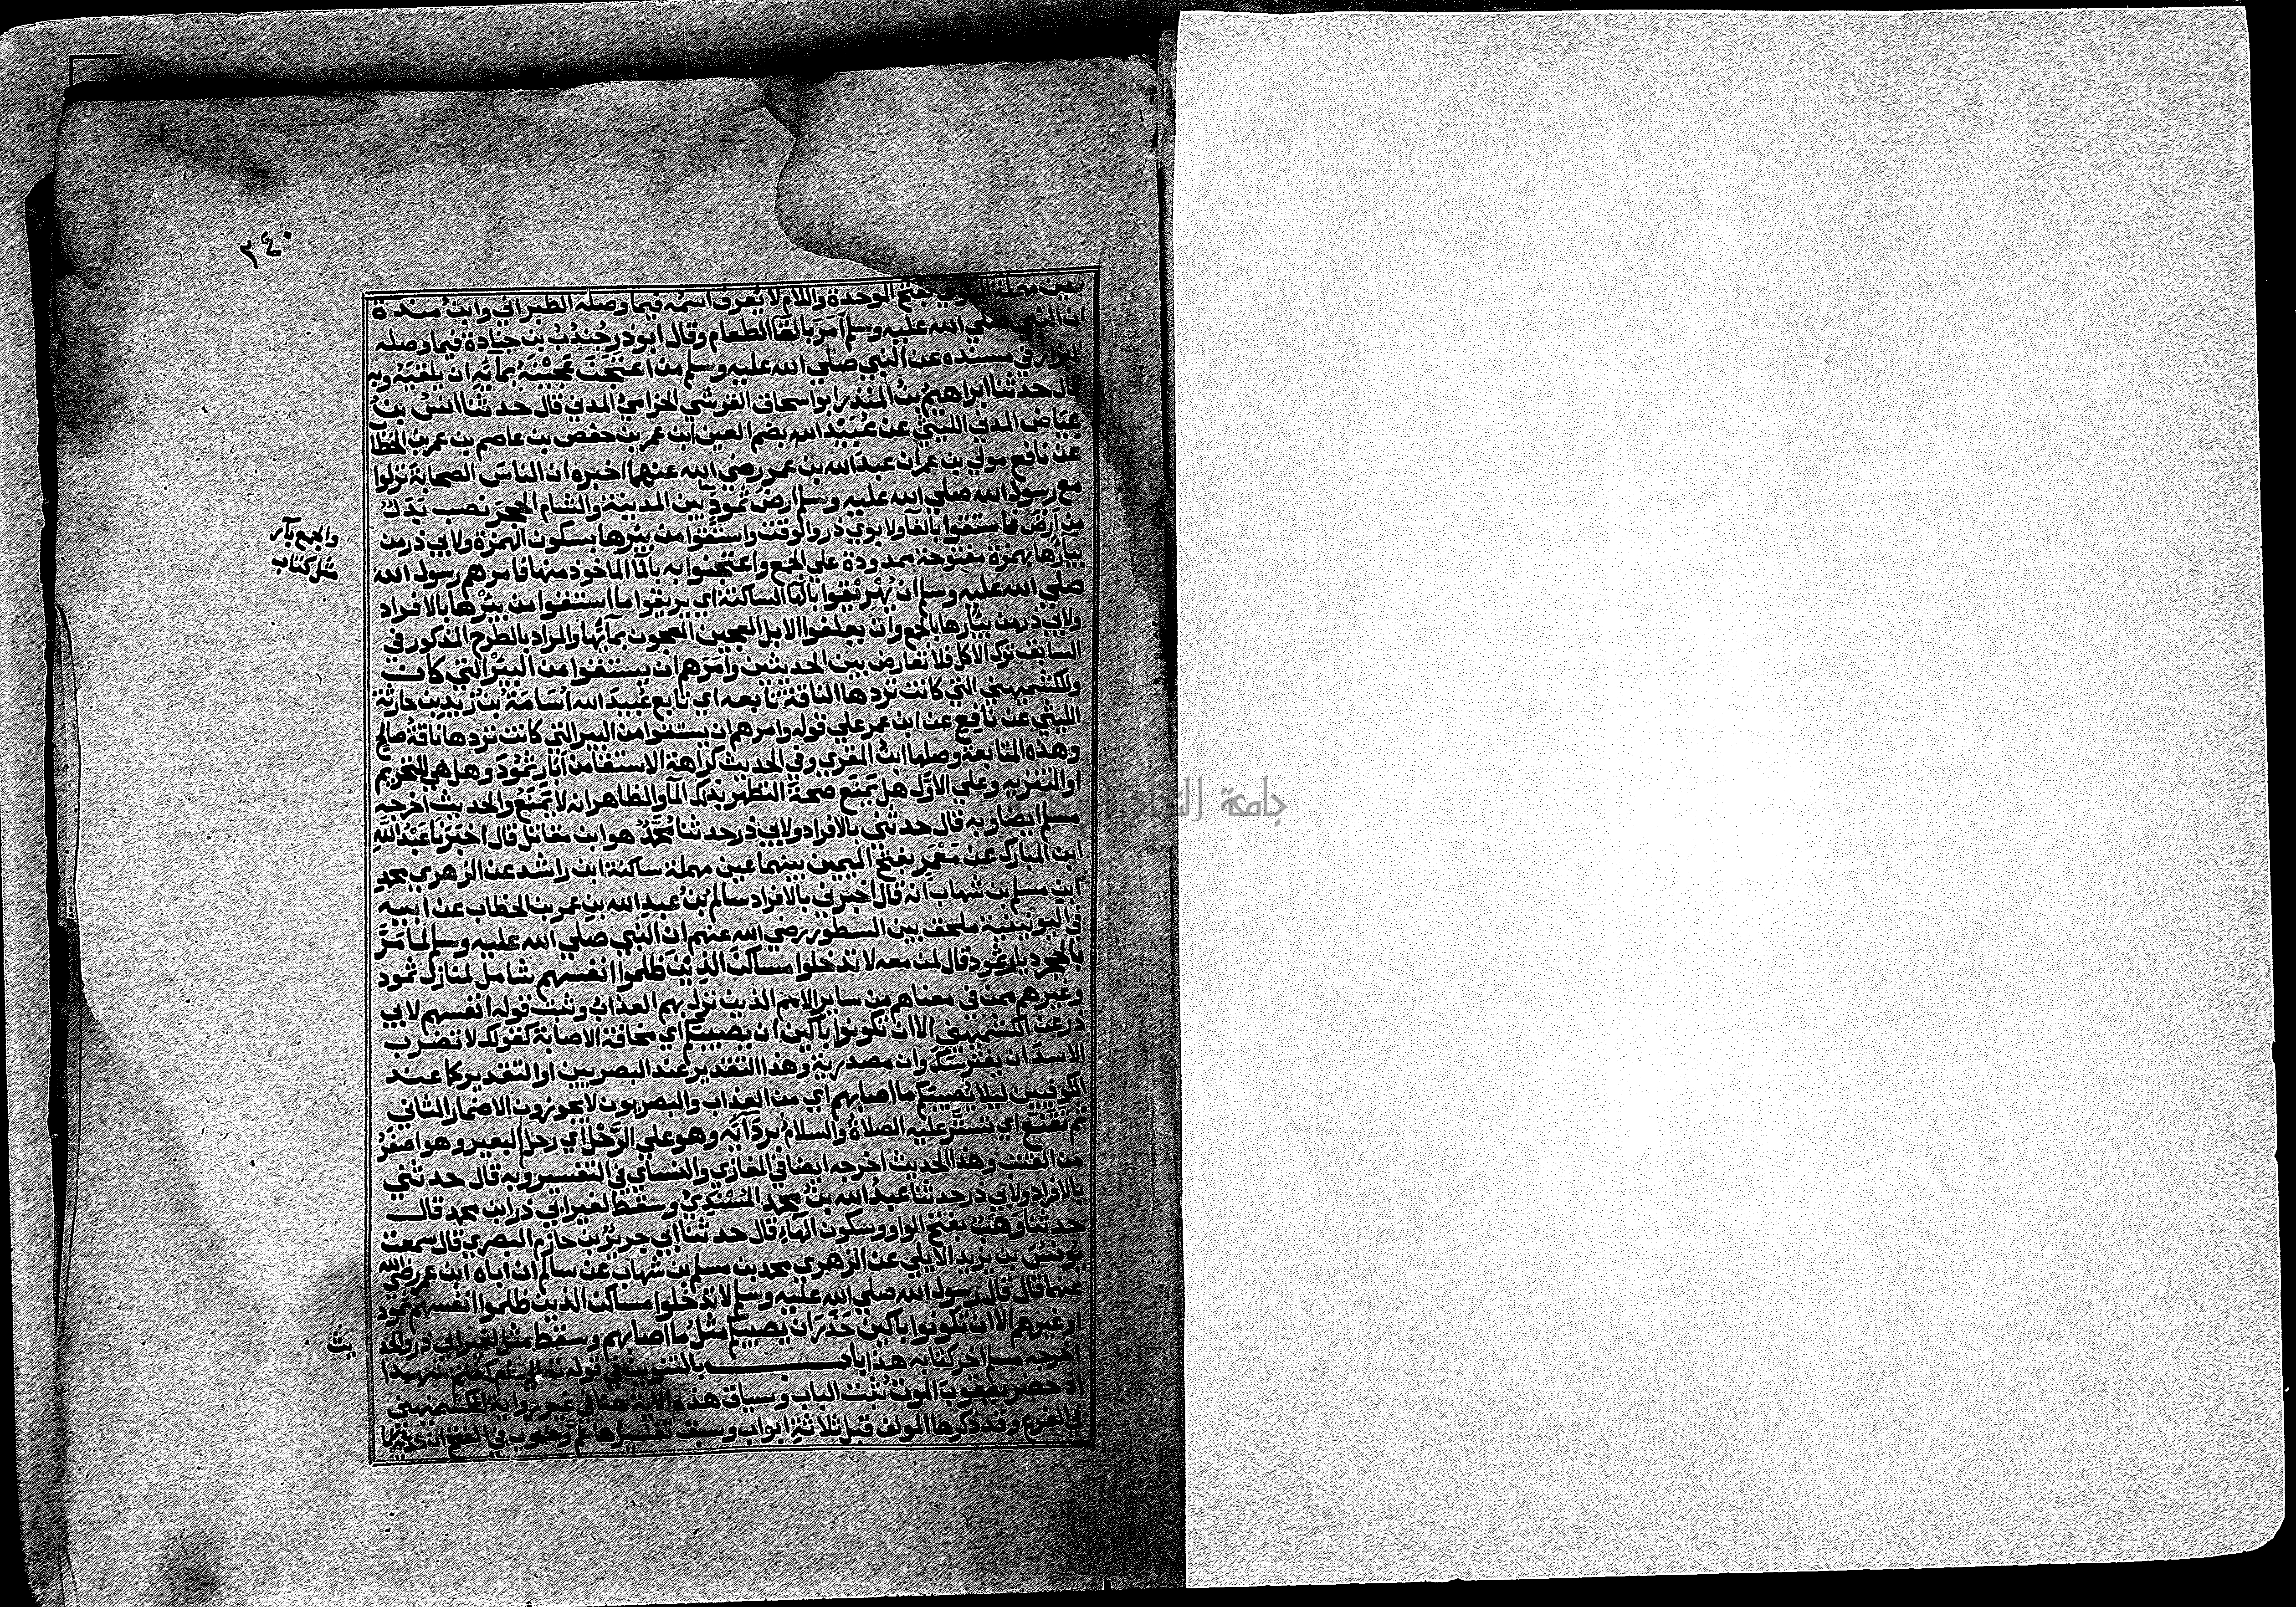 ٢٤٠
بفتح الوحدة واللام لا يُعرف اسمُه فيما وصله الطبراني وابن مندة
ان النبي صلي الله عليه وسلم اَمَرَ بالقآ الطعام وقال ابو ذر جُندُبُ بن جنادة فيما وصله
البزار في مسنده عن النبي صلي الله عليه وسلم من اعتَجَنَ عَجينَهُ بمآئِه ان يلقيَهُ وبه
قال حدثنا ابراهيمُ بنُ المنذر ابو اسحاق القرشي الحزاميُّ المدني قال حدثنا انسُ بنُ
عِيَاض المدني الليثيُّ عن عُبَيْد الله بضم العين ابن عمر بن حفص بن عاصم بن عمر بن الخطا
عن نافع مولي بن عمر ان عبدَ الله بن عمر رضي الله عنهما اخبره ان الناسَ الصحابة نزلوا
مع رسول الله صلي الله عليه وسلم ارضَ ثمودَ بين المدينة والشام الحِجرَ نصب بَدَل
من اَرضَ فاستقوا بالفآ ولابوي ذر والوقت واستقوا من بئرها بسكون الهمزة ولابي ذر من
بيآرها بهمزة مفتوحة ممدودة علي الجمع واعتجنوا به بالمآ الماخوذ منها فامرهم رسول الله
صلي الله عليه وسلم ان يُهْرِيْقوا بالهآ الساكنة اي يريقوا ما استقوا من بيرها بالافراد
ولابي ذر من بيآرها بالجمع وان يعلفوا الابل العجين المعجون بمآئها والمراد بالطرح المذكور في
السابق ترك الاكل فلا تعارض بين الحديثين وامَرَهم ان يستقوا من البير التي كان
وللكشميهني التي كانت تردها الناقة تابعه اي تابع عُبيدَ الله اُسَامَةُ بنُ زيدِ بن حارثة
الليثي عن نافِع عن ابن عمر علي قوله وامرهم ان يستقوا من البير التي كانت تردها ناقةُ صالح
وهذه المتابعة وصلها ابنُ المقري وفي الحديث كراهة الاستقا من آبار ثمودَ وهل هي للتحريم
او للتنزيه وعلي الاوَّل هل يَمنَع صحةَ التطهر بذلك المآ والظاهر انه لا يَمنَعُ والحديث اخرجه
مسلم ايضا وبه قال حدثني بالافراد ولابي ذر حدثنا محمَّدٌ هو ابن مقاتل قال اخبرَنا عَبْدُ اللهِ
ابن المبارك عن مَعْمَرٍ بفتح الميمين بينهما عين مهملة ساكنة ابن راشد عن الزهري محمد
ابن مسلم بن شهاب انه قال اخبرني بالافراد سالمُ بنُ عبدِ الله بنِ عمر بن الخطاب عن ابيه
في اليونينية ملحق بين السطور رضي الله عنهم ان النبي صلي الله عليه وسلم لما مَرَّ
بالحِجر ديار ثمود قال لمن معه لا تدخلوا مساكنَ الذينَ ظلموا انفسهم شامل لمنازل ثمود
وغيرهم ممن في معناهم من ساير الامم الذين نزل بهم العذابُ وثبت قوله انفسهم لابي
ذر عن الكشميهني الا ان تكونوا باكين ان يصيبَكم اي مخافة الاصابة كقولك لا تضرب
الاسدَ ان يفترسَكَ وان مصدرية وهذا التقدير عند البصريين او التقدير كما عند
الكوفيين ليلا يُصيبَكم ما اصابهم اي من العذاب والبصريون لا يجوزون الاضمار الثاني
ثم تَقَنَّع اي تستَّر عليه الصلاةُ والسلامُ بردآئِه وهو علي الرَّحْل اي رحل البعير وهو اصغرُ
من القتب وهذا الحديث اخرجه ايضا في المغازي والنسآي في التفسير وبه قال حدثني
بالافراد ولابي ذر حدثنا عبدُ الله بنُ محمد المُسْنَدِيُّ وسقط لغير ابي ذر ابن محمد قال
حدثنا وَهْبٌ بفتح الواو وسكون الهاء قال حدثنا ابي جريرُ بن حازم البصري قال سمعت
يُونُسَ بن يزيد الايلي عن الزهري محمد بن مسلم بن شهاب عن سالم ان اباه ابن عمر رضي الله
عنهما قال قال رسول الله صلي الله عليه وسلم لا تدخلوا مساكن الذين ظلموا انفسهم ثمود
او غيرهم الا ان تكونوا باكينَ حَذَرَ ان يصيبَكم مثلُ ما اصابهم وسقط مثل لغير ابي ذر والحد
اخرجه مسلم اخر كتابه هذا باب بالتنوين في قوله تعالي ام كنتم شهدا
اذ حضر يعقوبَ الموتُ ثبت الباب وسياق هذه الاية هنا في غير رواية الكشميهني
في الفرع وقد ذكرها المولف قبل ثلاثةِ ابواب وسبق تفسيرُها ثَمَّ وصوب في الفتح ان
والجمع بآر
مثل كتاب
يث